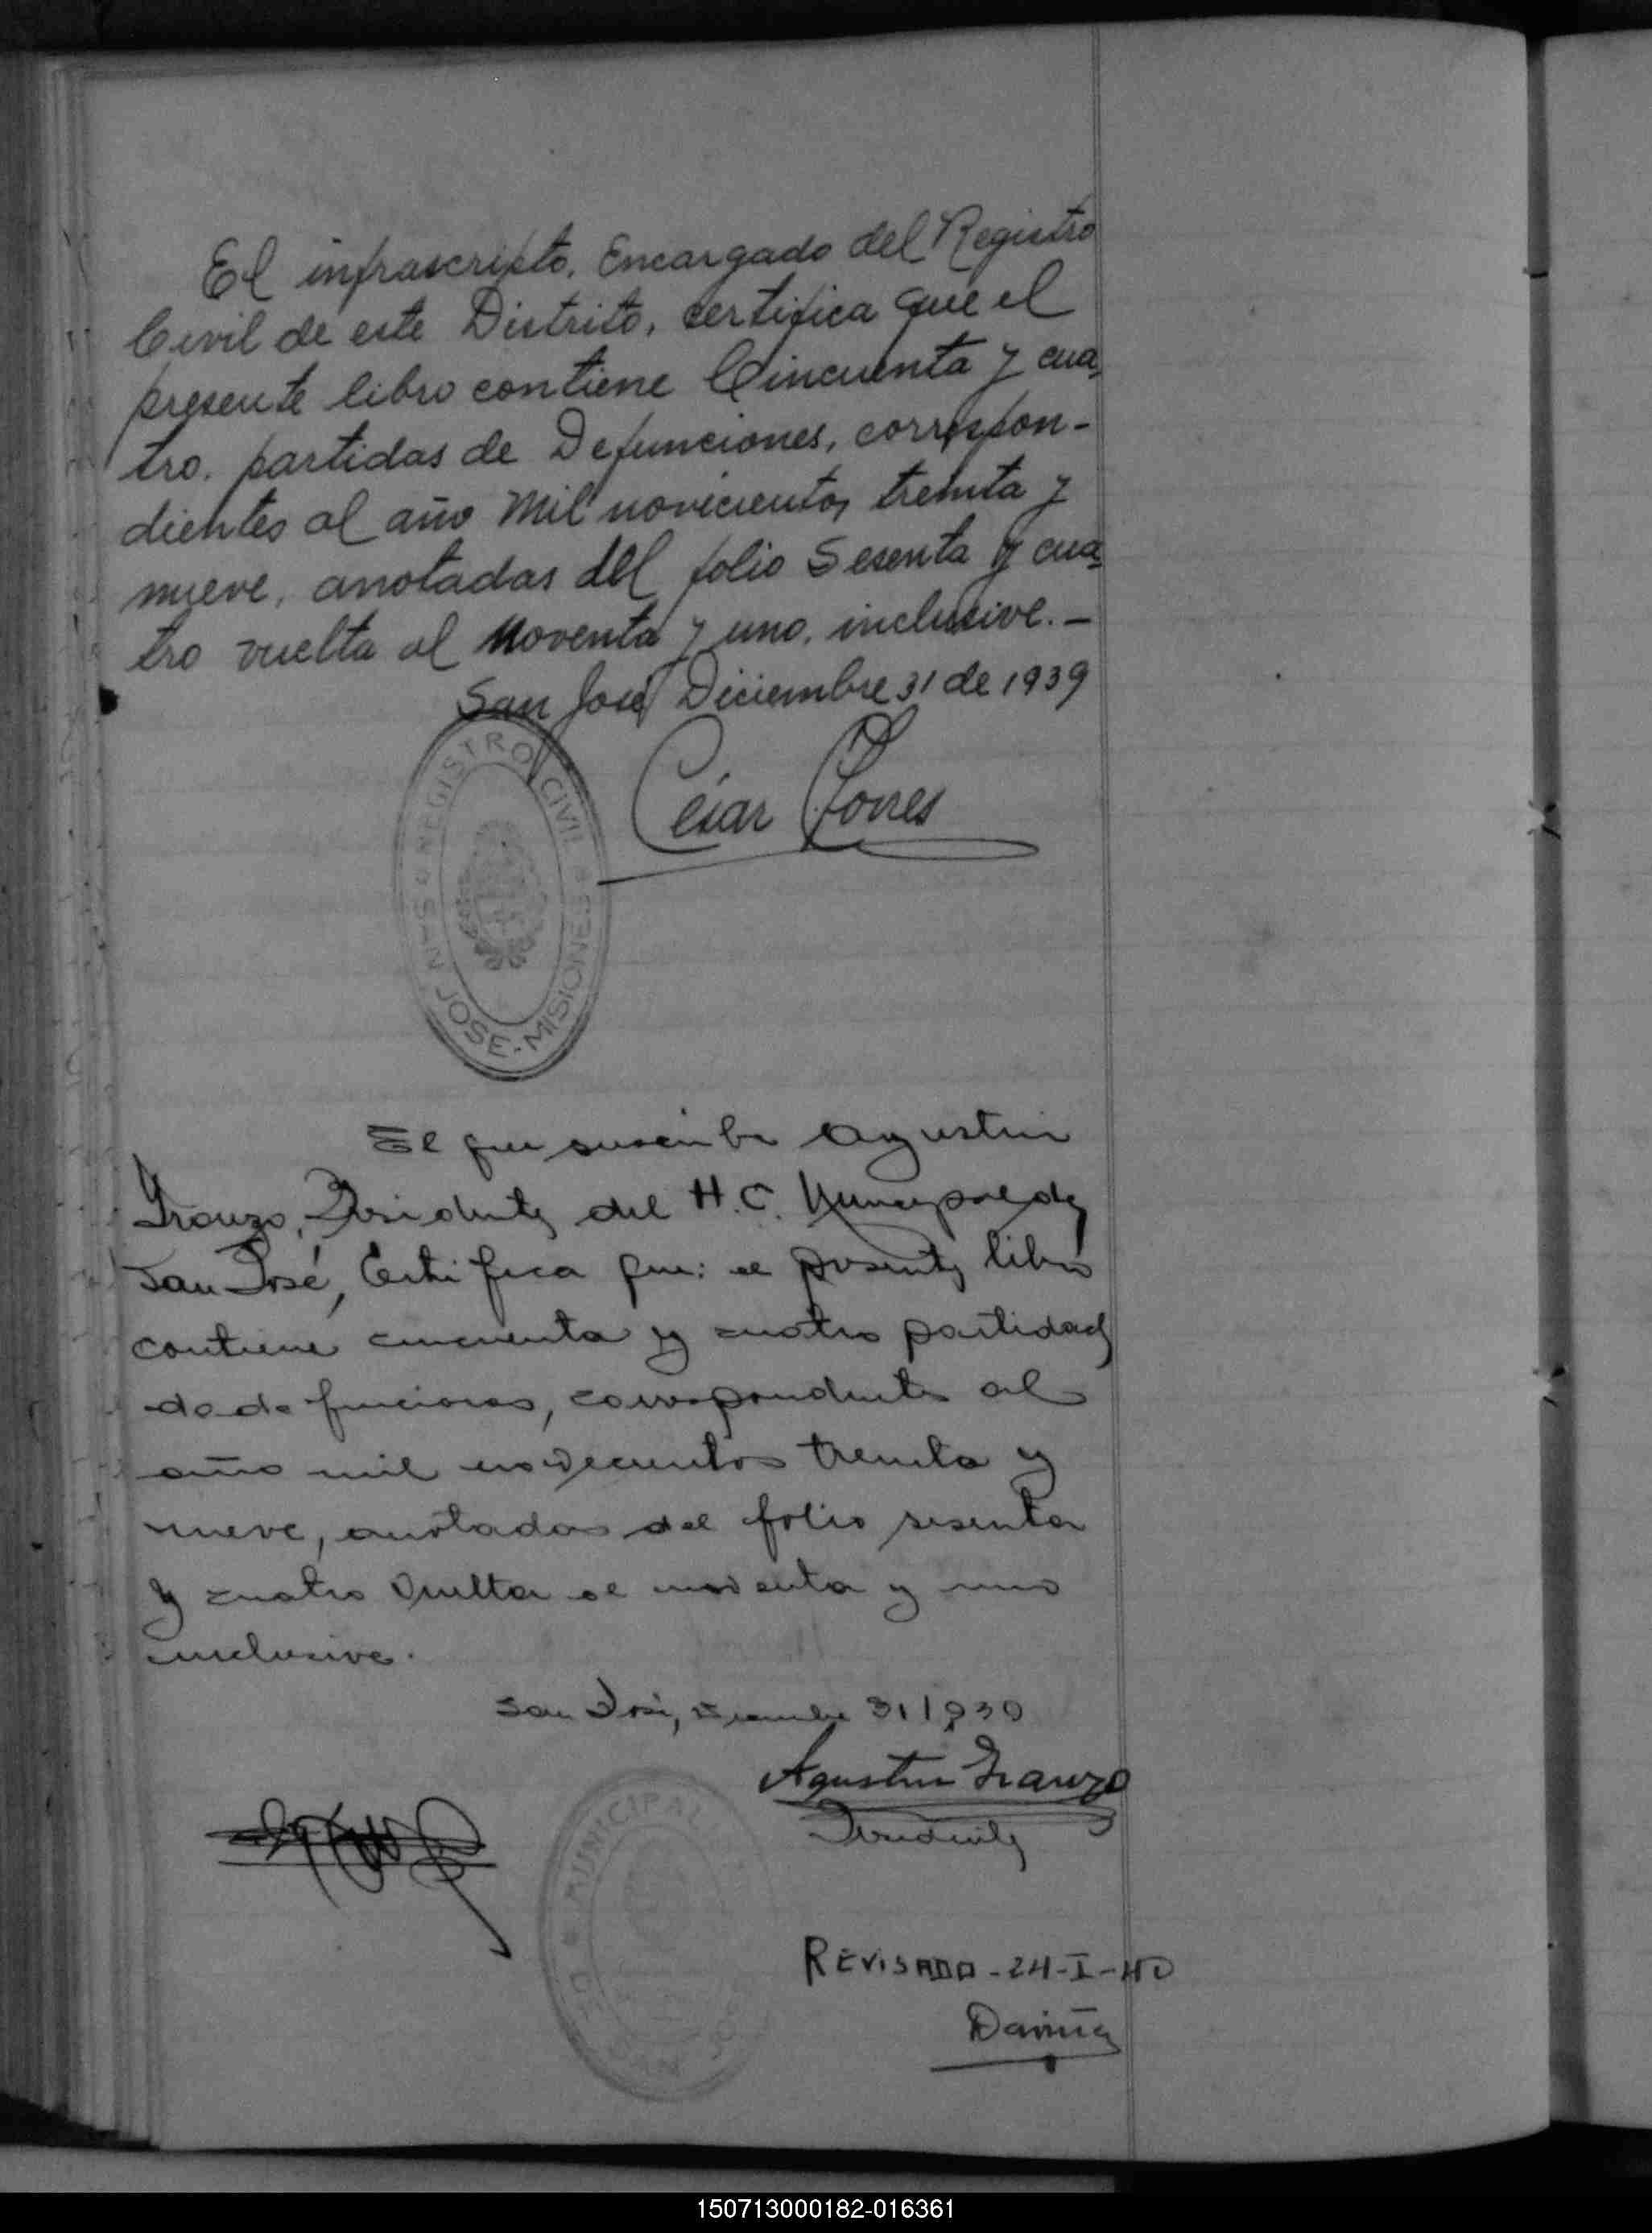 El infrascripto, Encargado del Registro
Civil de este Distrito, certifica que el
presente libro contiene Cincuenta y cua-
tro. partidas de Defunciones, correspon-
dientes al año Mil novecientos treinta y
nueve, anotadas del folio Sesenta y cua-
tro vuelta al Noventa y uno, inclusive.-
San José Diciembre 31 de 1939
César Torres
REGISTRO CIVIL
SAN JOSE - MISIONES
El que suscribe Agustin
Iranzo, Presidente del H.C. Municipal de
San José, Certifica que: el presente libro
contiene cincuenta y cuatro partidas
de defunciones, correspondientes al
año mil novecientos treinta y
nueve, anotadas del folio sesenta
y cuatro vuelta al noventa y uno
inclusive.
San José, Diciembre 31/939
Agustin Iranzo
Presidente
MUNICIPAL
DE SAN JOSE
REVISADO - 24-I-40
150713000182-016361